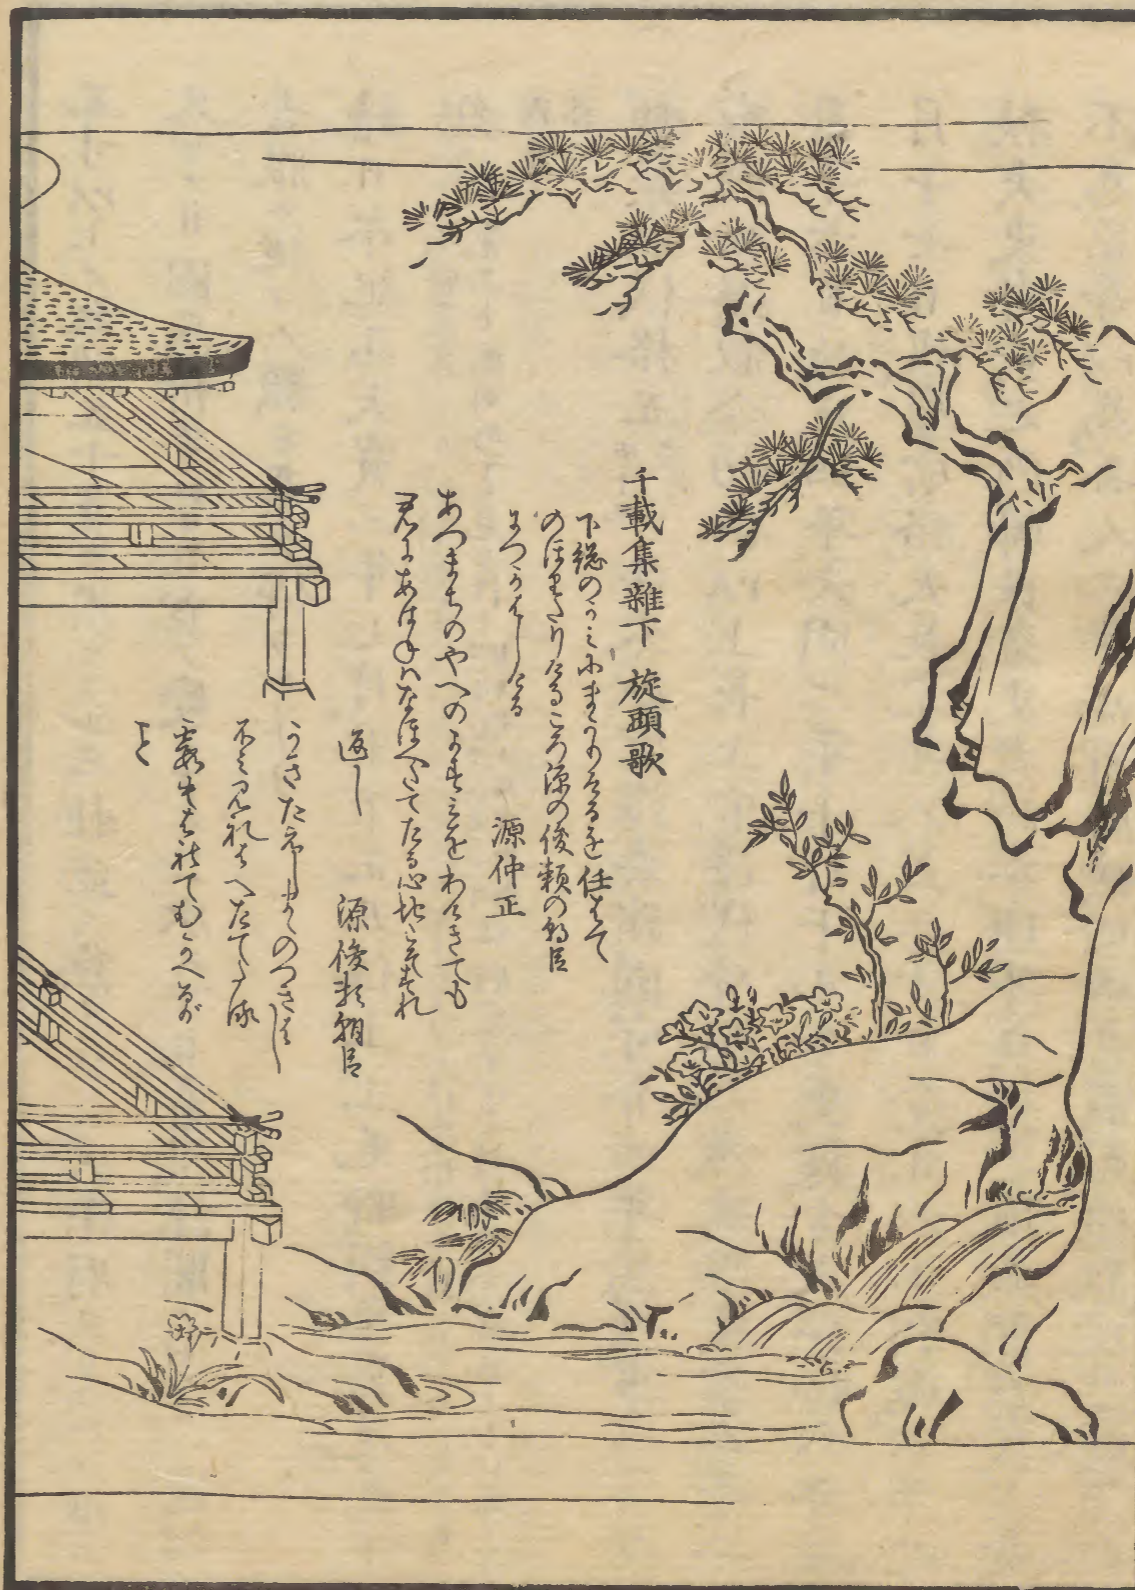 千載集雜下 旋頭歌
下総のかみにまかりけるを任はて
のほりたりけるころ源の俊頼の朝臣
につかはしける
源仲正
あつまちのやへのかすみをわけきても
君にあはねハなほへたてたる心地こそすれ
返し
源俊頼朝臣
かきたえしまゝのつきはし
ふみ見れはへたてたる
霞もはれてむかへるが
こと